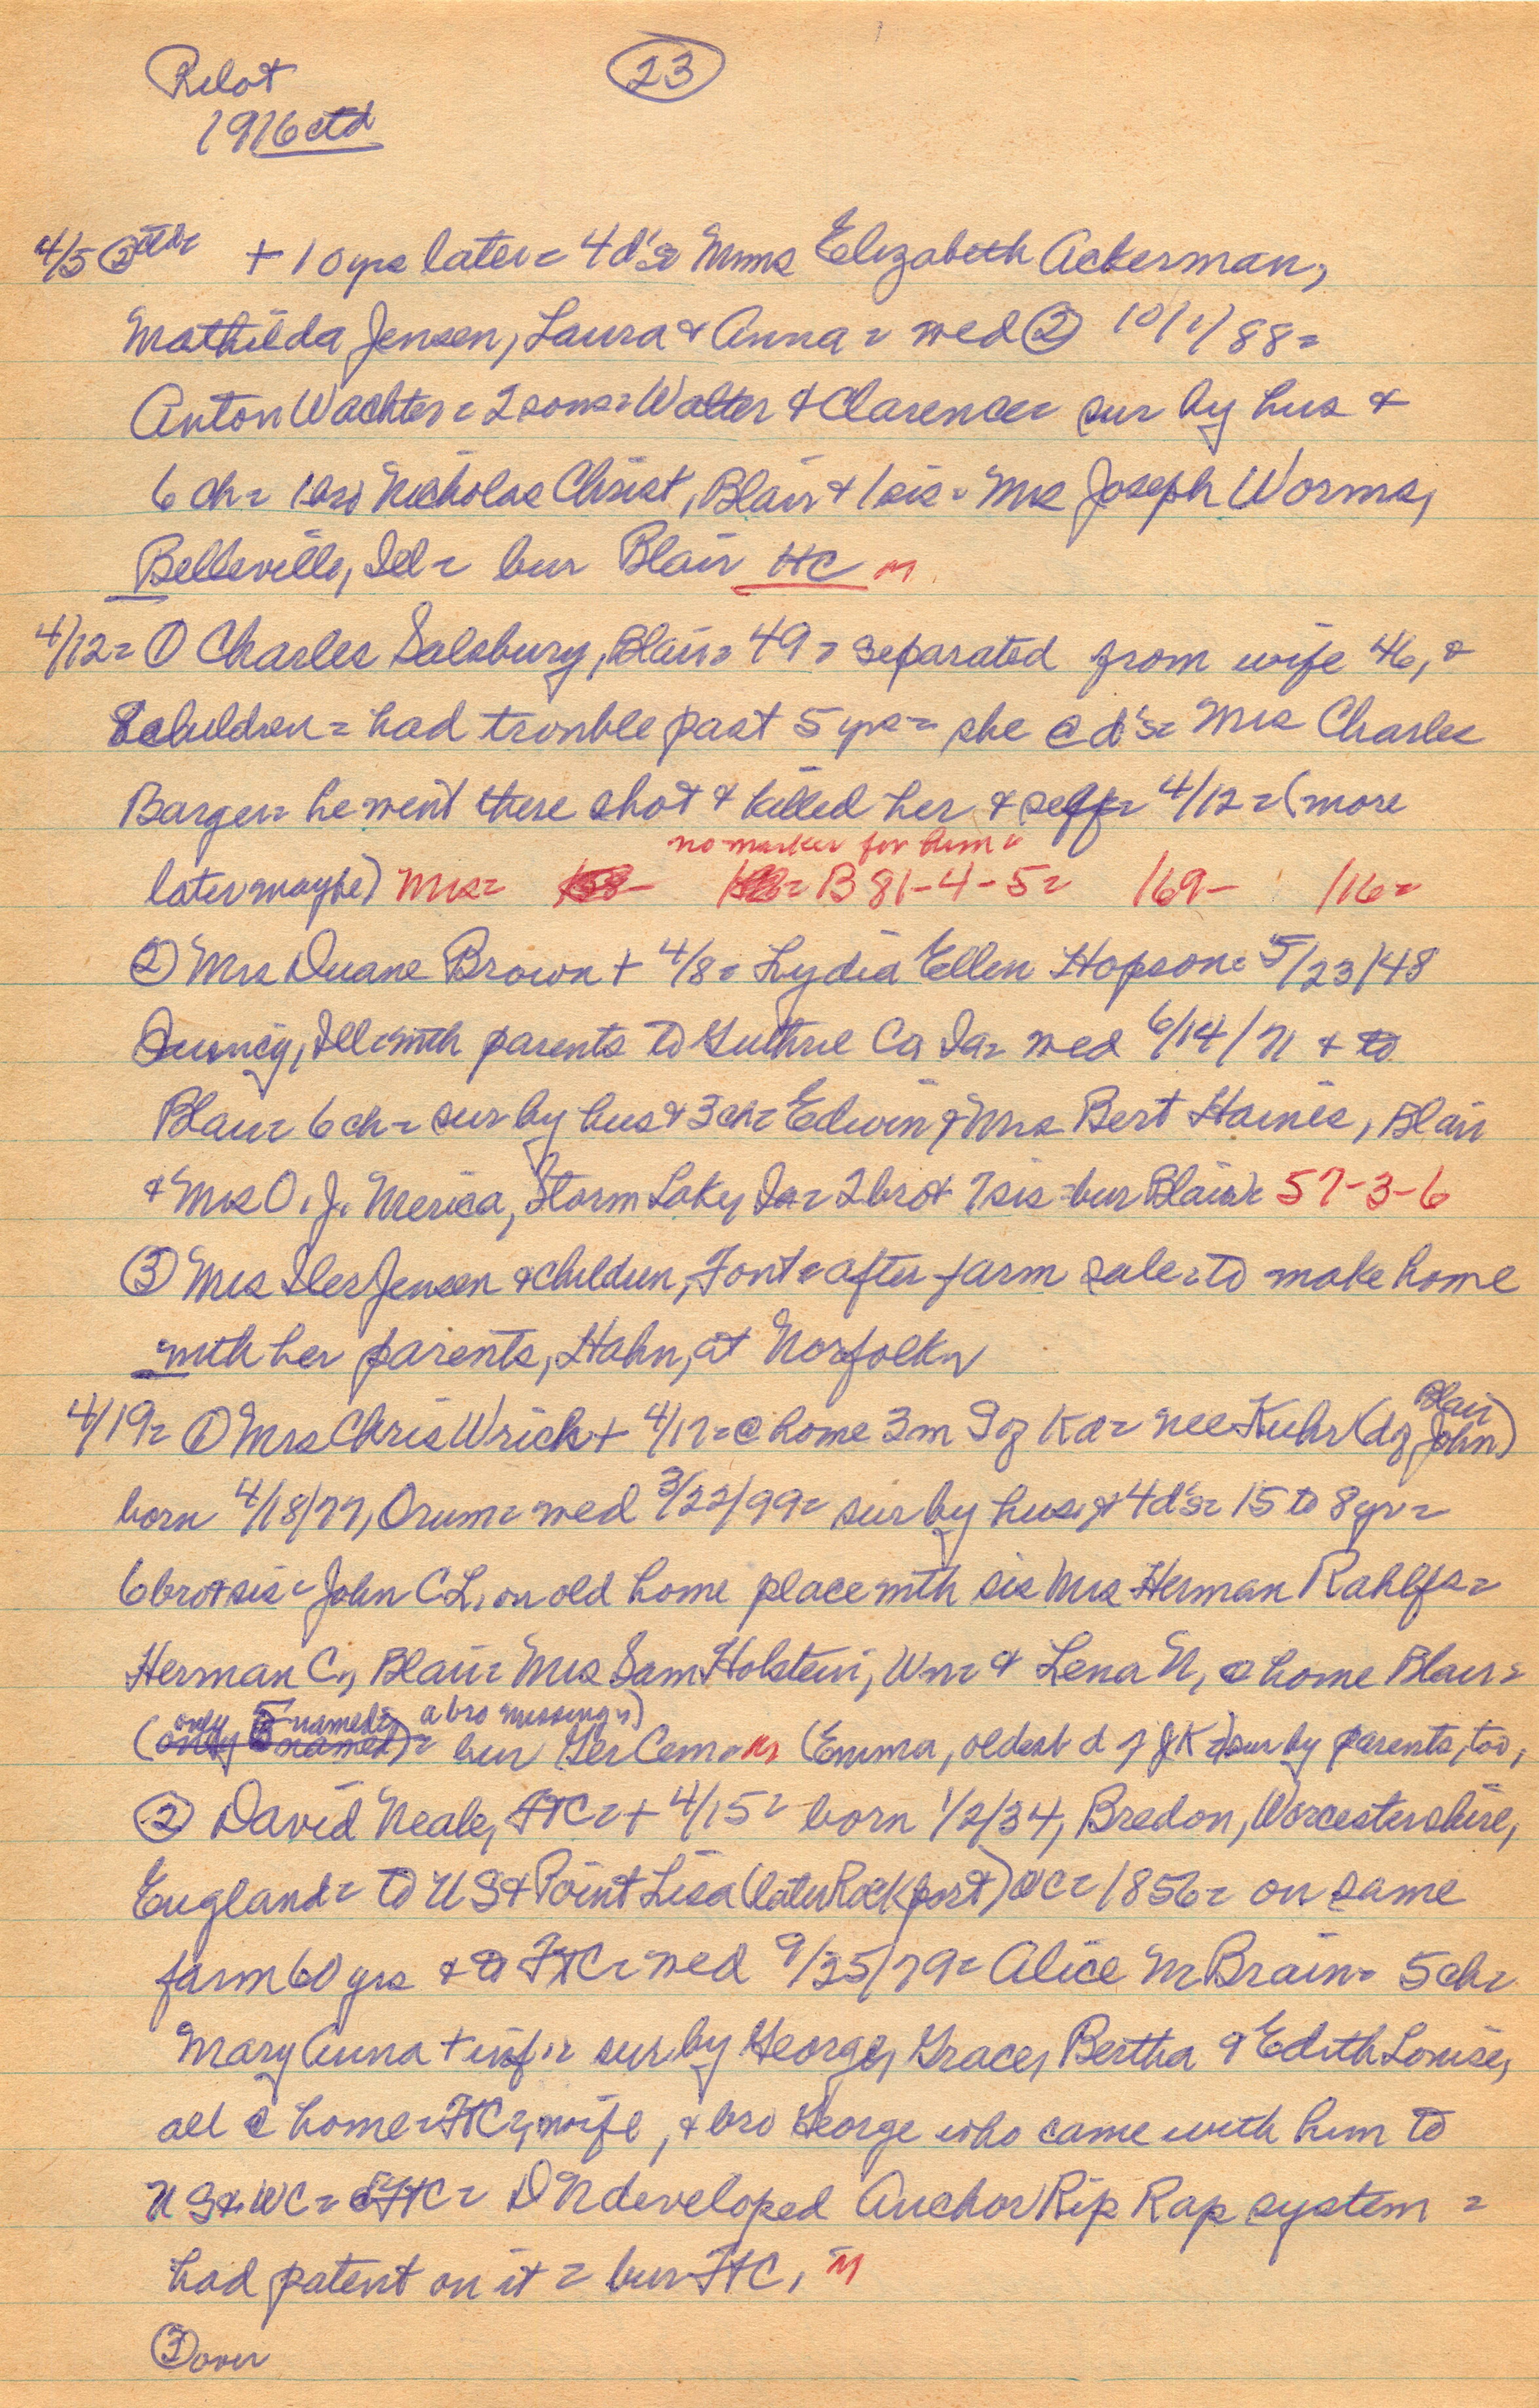 Pilot
23
1916 ctd
4/5 ② ctd= + 10 yrs later= 4 d's= Mmes Elizabeth Ackerman,
Mathilda Jensen, Laura & Anna= wed ② 10/1/88=
Anton Wachter= 2 sons= Walter & Clarence= sur by hus &
6 ch= 1 bro Nicholas Christ, Blair & 1 sis= Mrs Joseph Worms,
Belleville, Ill= bur Blair HC M
4/12= ① Charles Salsbury, Blair= 49= separated from wife 46, &
8 children= had trouble past 5 yrs= she @ d's= Mrs Charles
Barger= he went there shot & killed her & self= 4/12= (more
no marker for him=
later maybe) Mrs= B 81-4-5= 169- 116=
② Mrs Duane Brown + 4/8= Lydia Ellen Hopson= 5/23/48
Quincy, Ill= with parents to Guthrie Co Ia= wed 6/14/71 & to
Blair= 6 ch= sur by hus & 3 ch= Edwin & Mrs Bert Haines, Blair
& Mrs O. J. Merica, Storm Lake, Ia= 2 bro & 7 sis= bur Blair= 57-3-6
③ Mrs Iler Jensen & children, Font= after farm sale= to make home
with her parents, Hahn, at Norfolk=
4/19= ① Mrs Chris Wrich + 4/17= @ home 3 m S of Ka= nee Kuhr (d of John) Blair
born 4/18/77, Orum= wed 3/22/99= sur by hus, & 4 d's= 15 to 8 yr=
6 bro & sis= John C.L. on old home place with sis Mrs Herman Rahlfs=
Herman C., Blair= Mrs Sam Holstein, Wm= & Lena N, @ home Blair=
only 5 named, a bro missing=)
(only 5 named)= bur Ger Cem= M (Emma, oldest d of JK=) sur by parents, too,
② David Neale, FTC= + 4/15= born 1/2/34, Bredon, Worcestershire,
England= to US & Point Lisa (later Rockport) WC= 1856= on same
farm 60 yrs & @ FTC= wed 9/25/79= Alice M Brain= 5 ch=
Mary Anna + inf.= sur by George, Grace, Bertha & Edith Louise,
all @ home= FTC=, wife, & bro George who came with him to
US & WC= @ FTC= DN developed Anchor Rip Rap system =
had patent on it = bur FTC, M
③ over